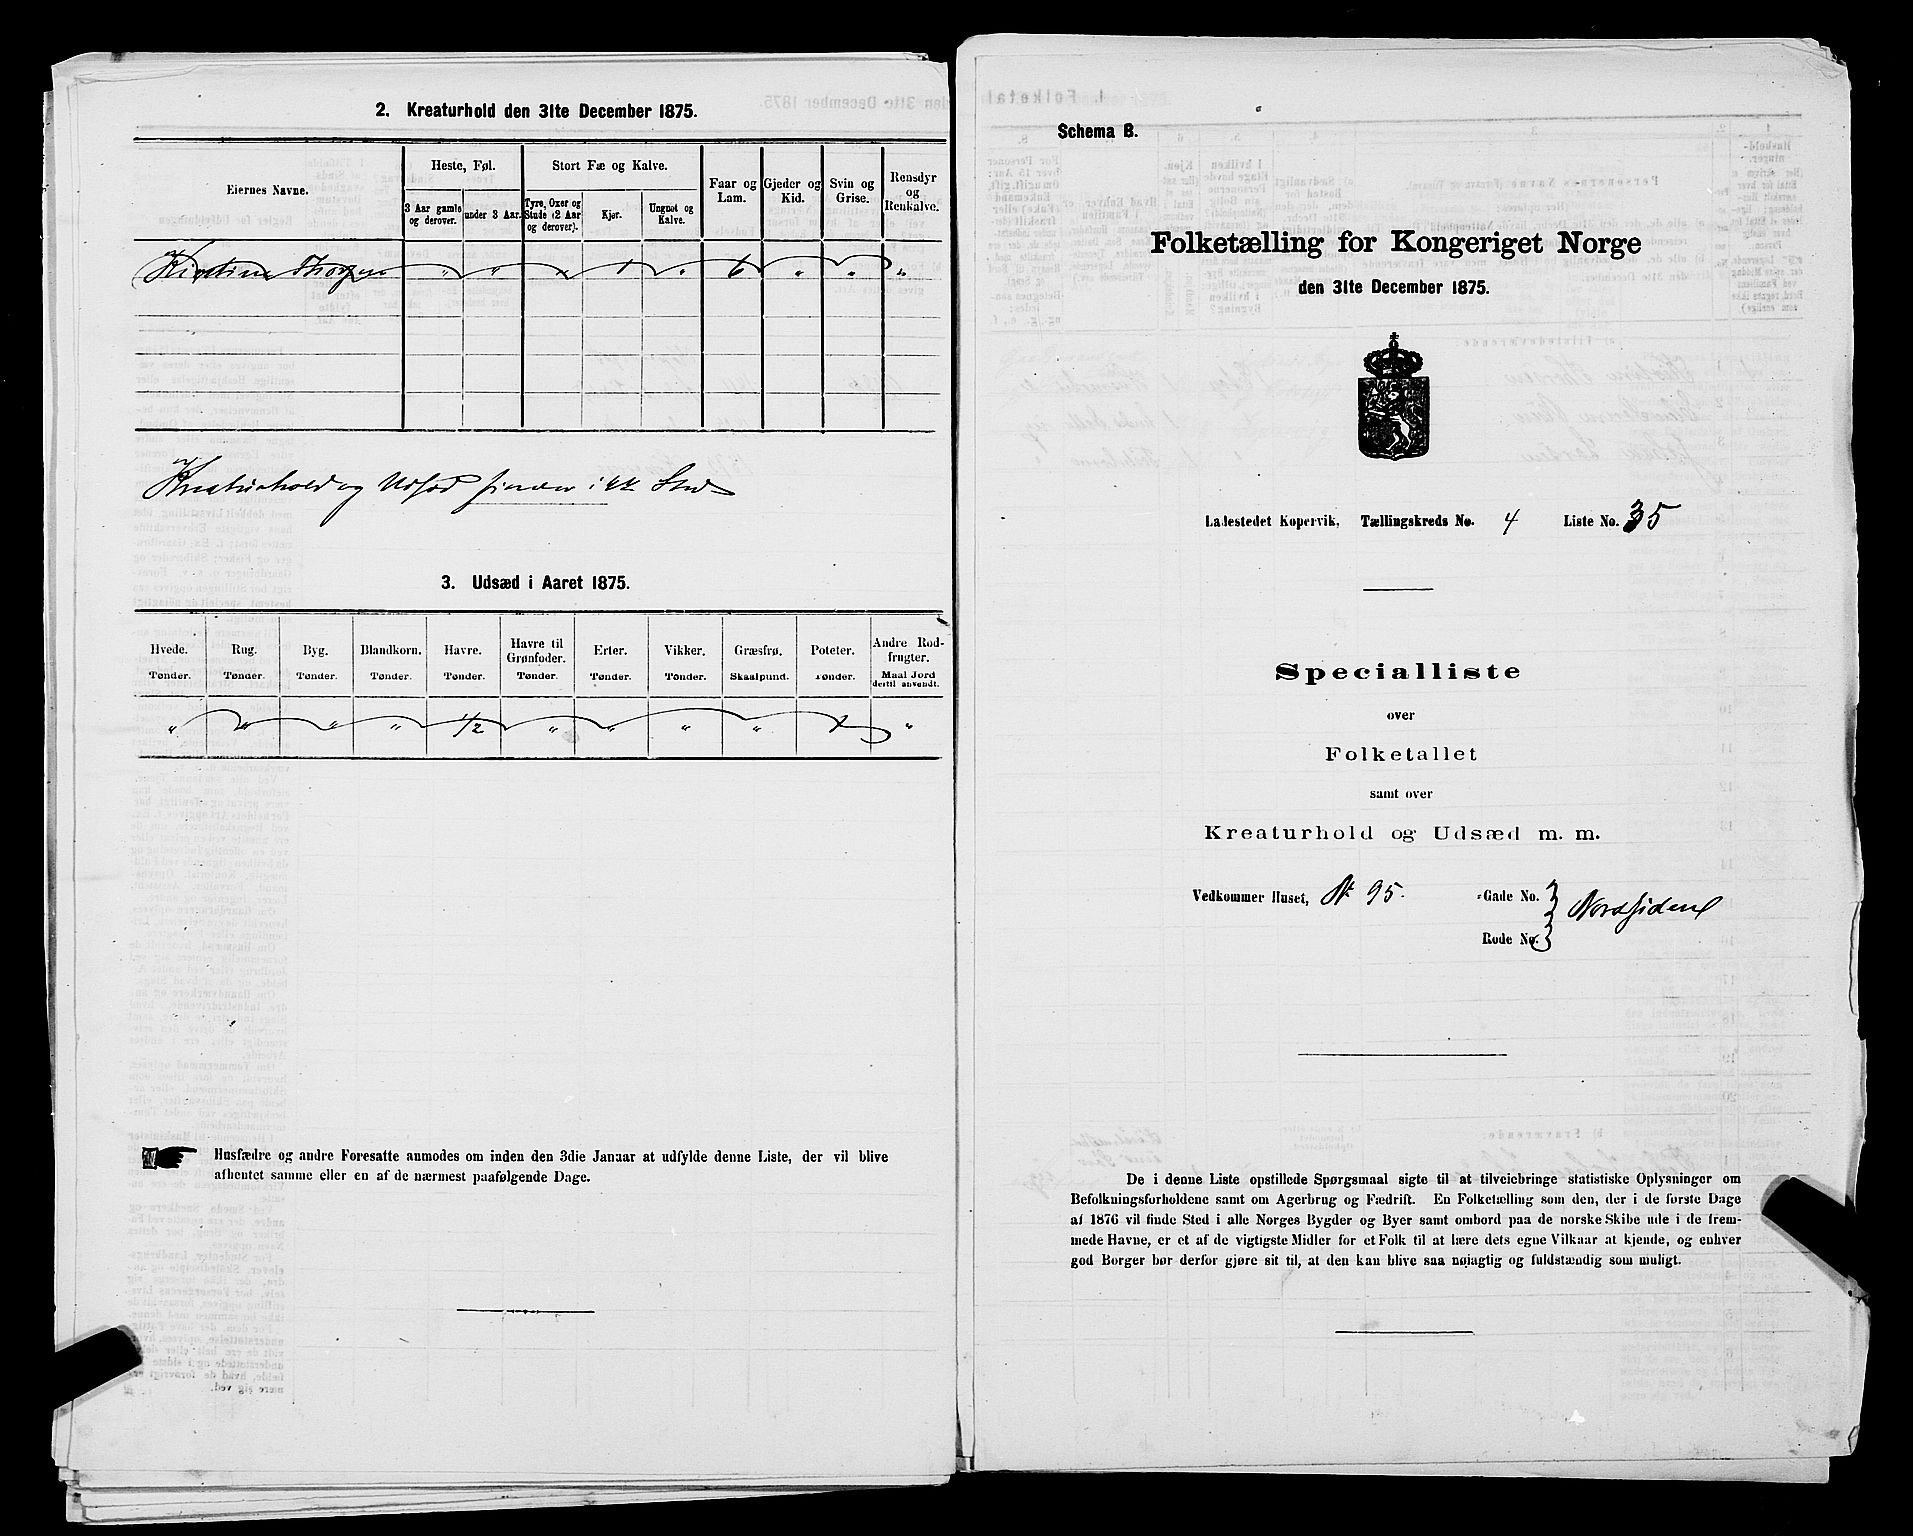 2. Kreaturhold den 31te December 1875.
Eiernes Navne.
Heste, Føl.
Stort Fæ og Kalve.
Faar og Lam.
Gjeder og Kid.
Svin og Grise.
Rensdyr og Renkalve.
3 Aar gamle og derover.
under 3 Aar.
Tyre, Oxer og Stude (2 Aar og derover).
Kjør.
Ungnøt og Kalve.
" " " 1 " 6 " " "
Kreaturhold og Udsæd finder ikke Sted
3. Udsæd i Aaret 1875.
Hvede. Rug. Byg. Blandkorn. Havre. Havre til Grønfoder. Erter. Vikker. Græsfrø. Poteter. Andre Rodfrugter.
Tønder. Tønder. Tønder. Tønder. Tønder. Tønder. Tønder. Tønder. Skaalpund. Tønder. Maal Jord dertil anvendt.
" " " " 1/2 " " " " "
Husfædre og andre Foresatte anmodes om inden den 3die Januar at udfylde denne Liste, der vil blive
afhentet samme eller en af de nærmest paafølgende Dage.
Schema B.
Folketælling for Kongeriget Norge
den 31te December 1875.
Ladestedet Kopervik, Tællingskreds No. 4 Liste No. 35
Specialliste
over
Folketallet
samt over
Kreaturhold og Udsæd m. m.
Vedkommer Huset, No 95. Gade No. } Nordsiden
Rode No.
De i denne Liste opstillede Spørgsmaal sigte til at tilveiebringe statistiske Oplysninger om
Befolkningsforholdene samt om Agerbrug og Fædrift. En Folketælling som den, der i de første Dage
af 1876 vil finde Sted i alle Norges Bygder og Byer samt ombord paa de norske Skibe ude i de frem-
mede Havne, er et af de vigtigste Midler for et Folk til at lære dets egne Vilkaar at kjende, og enhver
god Borger bør derfor gjøre sit til, at den kan blive saa nøiagtig og fuldstændig som muligt.